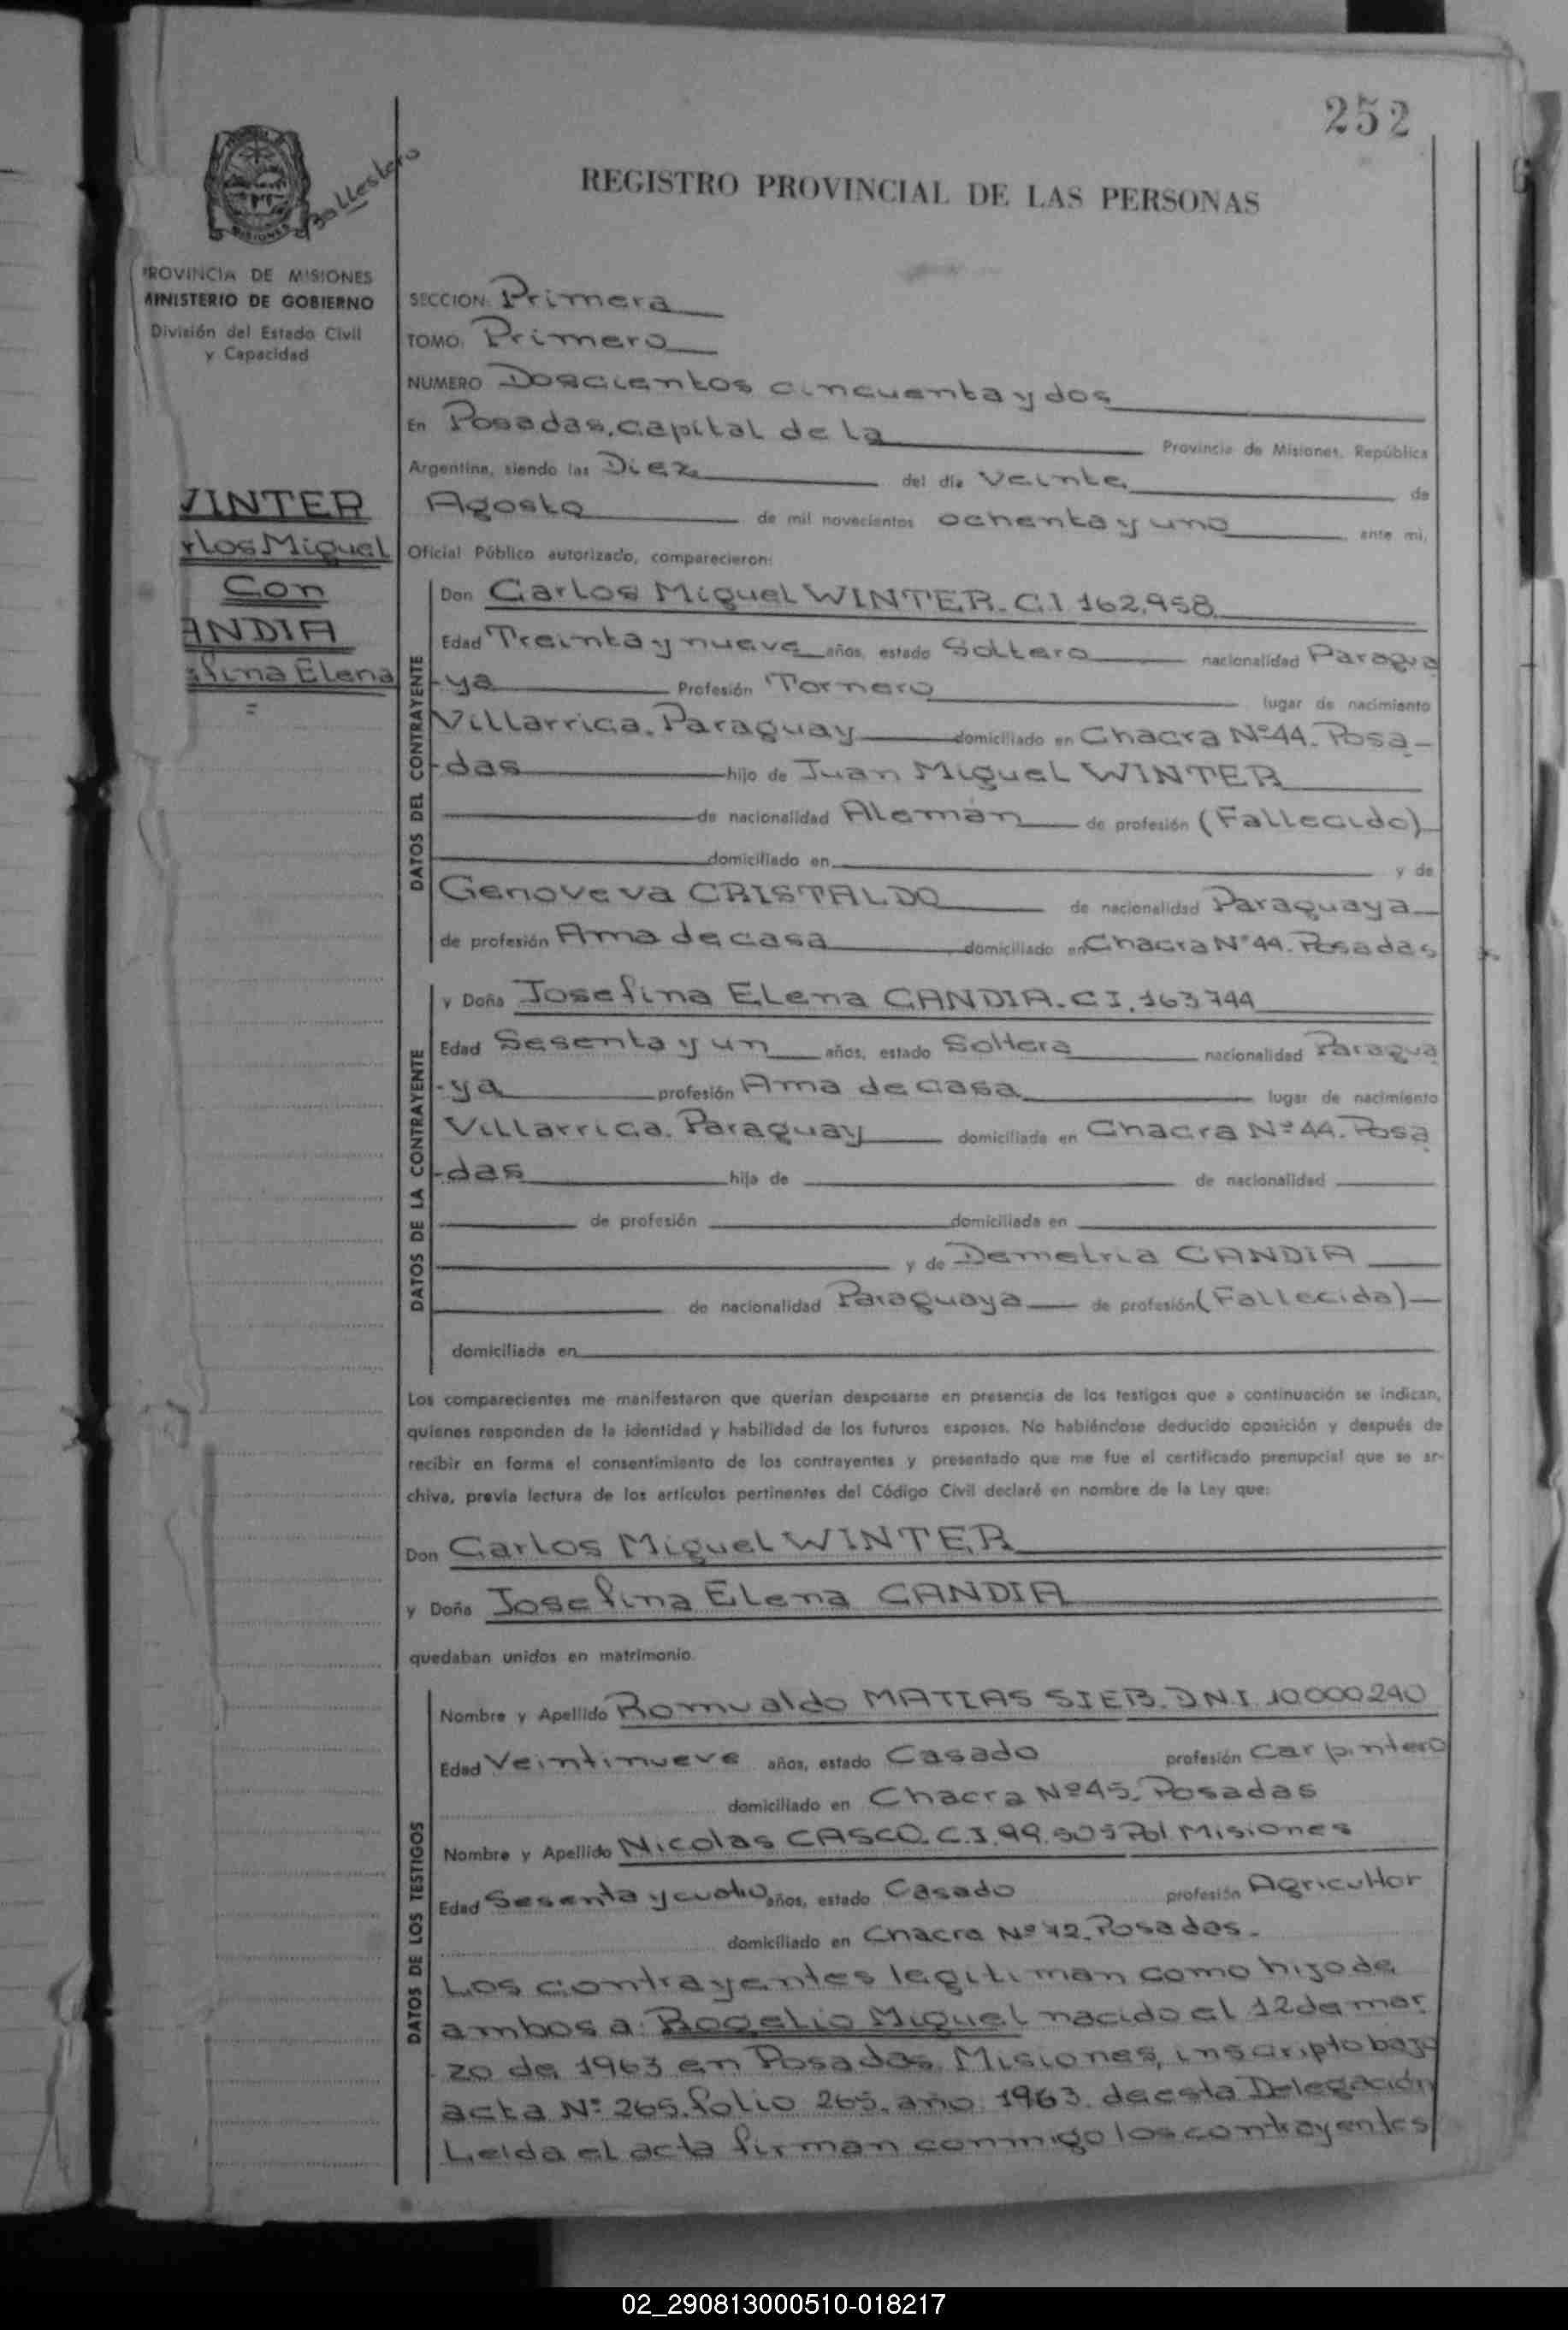 252
Ballestero
REGISTRO PROVINCIAL DE LAS PERSONAS
MISIONES
PROVINCIA DE MISIONES
MINISTERIO DE GOBIERNO
División del Estado Civil
y Capacidad
SECCION: Primera
TOMO: Primero
NUMERO Doscientos cincuenta y dos
En Posadas, capital de la Provincia de Misiones, República
Argentina, siendo las Diez del día Veinte de
Agosto de mil novecientos ochenta y uno ante mi,
Oficial Público autorizado, comparecieron:
WINTER
rlos Miguel
Con
ANDIA
sefina Elena
=
DATOS DEL CONTRAYENTE
Don Carlos Miguel WINTER. C.I 162.958
Edad Treinta y nueve años, estado Soltero nacionalidad Paragua
-ya Profesión Tornero lugar de nacimiento
Villarrica. Paraguay domiciliado en Chacra Nº44. Posa-
-das hijo de Juan Miguel WINTER
de nacionalidad Alemán de profesión (Fallecido)
domiciliado en y de
Genoveva CRISTALDO de nacionalidad Paraguaya
de profesión Ama de casa domiciliado en Chacra Nº44. Posadas
DATOS DE LA CONTRAYENTE
y Doña Josefina Elena CANDIA. C.I. 163744
Edad Sesenta y un años, estado Soltera nacionalidad Paragua
-ya profesión Ama de casa lugar de nacimiento
Villarrica. Paraguay domiciliada en Chacra Nº44. Posa
-das hija de de nacionalidad
de profesión domiciliada en
y de Demetria CANDIA
de nacionalidad Paraguaya de profesión (Fallecida)
domiciliada en
Los comparecientes me manifestaron que querían desposarse en presencia de los testigos que a continuación se indican,
quienes responden de la identidad y habilidad de los futuros esposos. No habiéndose deducido oposición y después de
recibir en forma el consentimiento de los contrayentes y presentado que me fue el certificado prenupcial que se ar-
chiva, previa lectura de los artículos pertinentes del Código Civil declaré en nombre de la Ley que:
Don Carlos Miguel WINTER
y Doña Josefina Elena CANDIA
quedaban unidos en matrimonio.
DATOS DE LOS TESTIGOS
Nombre y Apellido Romualdo MATIAS SIEB. D.N.I 10.000240
Edad Veintinueve años, estado Casado profesión Carpintero
domiciliado en Chacra Nº45. Posadas
Nombre y Apellido Nicolas CASCO. C.I. Misiones
Edad Sesenta y cuatro años, estado Casado profesión Agricultor
domiciliado en Chacra Posadas.
Los contrayentes legitiman como hijo de
ambos a: Rogelio Miguel nacido el 12 de mar
zo de 1963 en Posadas. Misiones, inscripto bajo
acta Nº 265. folio 265. año 1963. de esta Delegación
Leida el acta firman conmigo los contrayentes
02_290813000510-018217